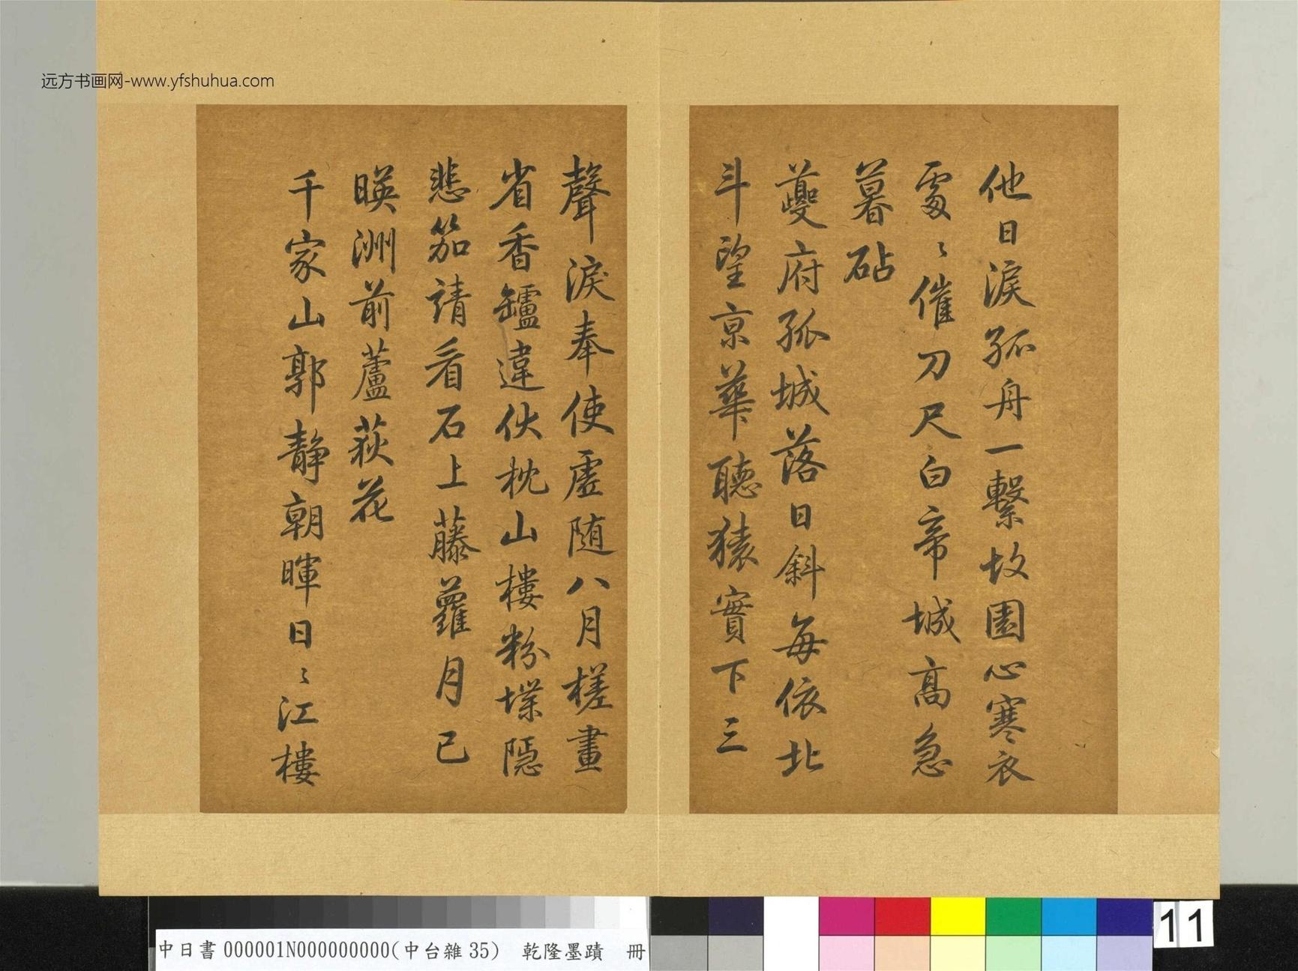 远方书画网-www.yfshuhua.com
他日淚孤舟一繫故園心寒衣
處〻催刀尺白帝城高急
暮砧
夔府孤城落日斜每依北
斗望京華聽猿實下三
聲淚奉使虛随八月槎畫
省香罏違伏枕山樓粉堞隱
悲笳請看石上藤蘿月已
暎洲前蘆荻花
千家山郭靜朝暉日〻江樓
中日書000001N000000000(中台雜35) 乾隆墨蹟 冊
11